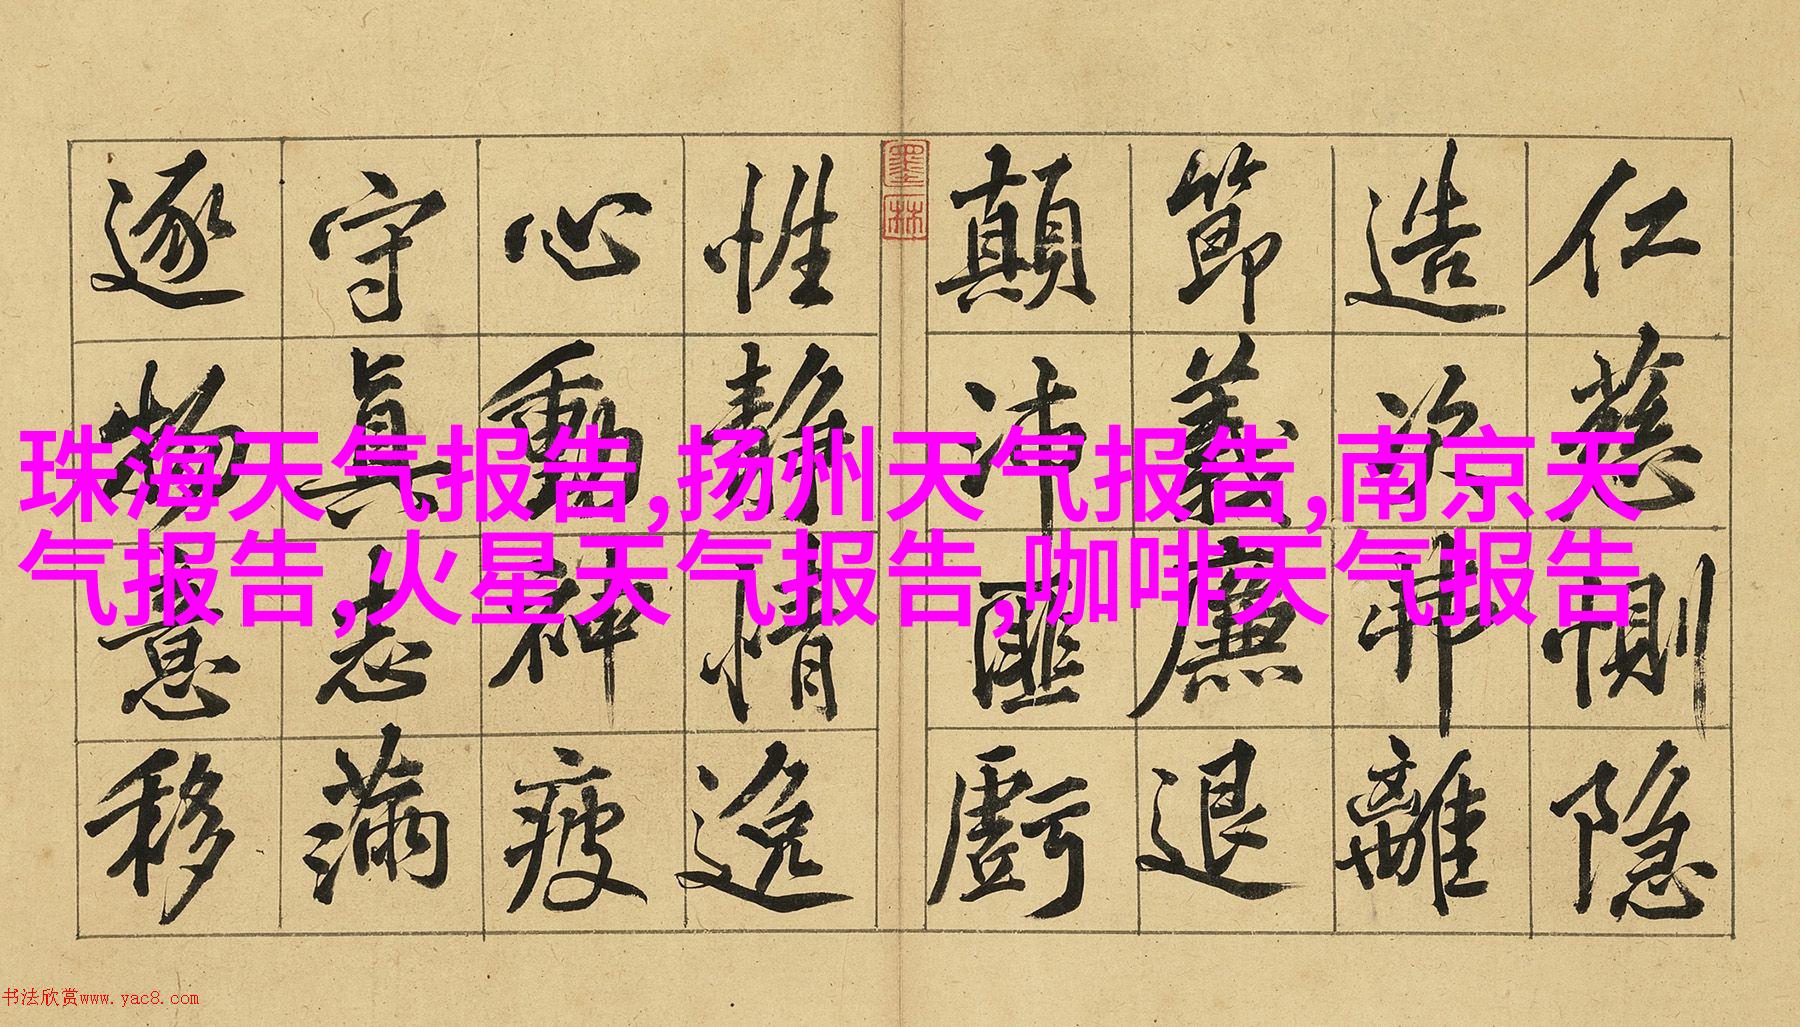 仁慈隱惻
造次弗離
節義廉退
顛沛匪虧
性靜情逸
心動神疲
守真志滿
逐物意移
墨林
珠海天气报告,扬州天气报告,南京天
气报告,火星天气报告,咖啡天气报告
书法欣赏www.yac8.com